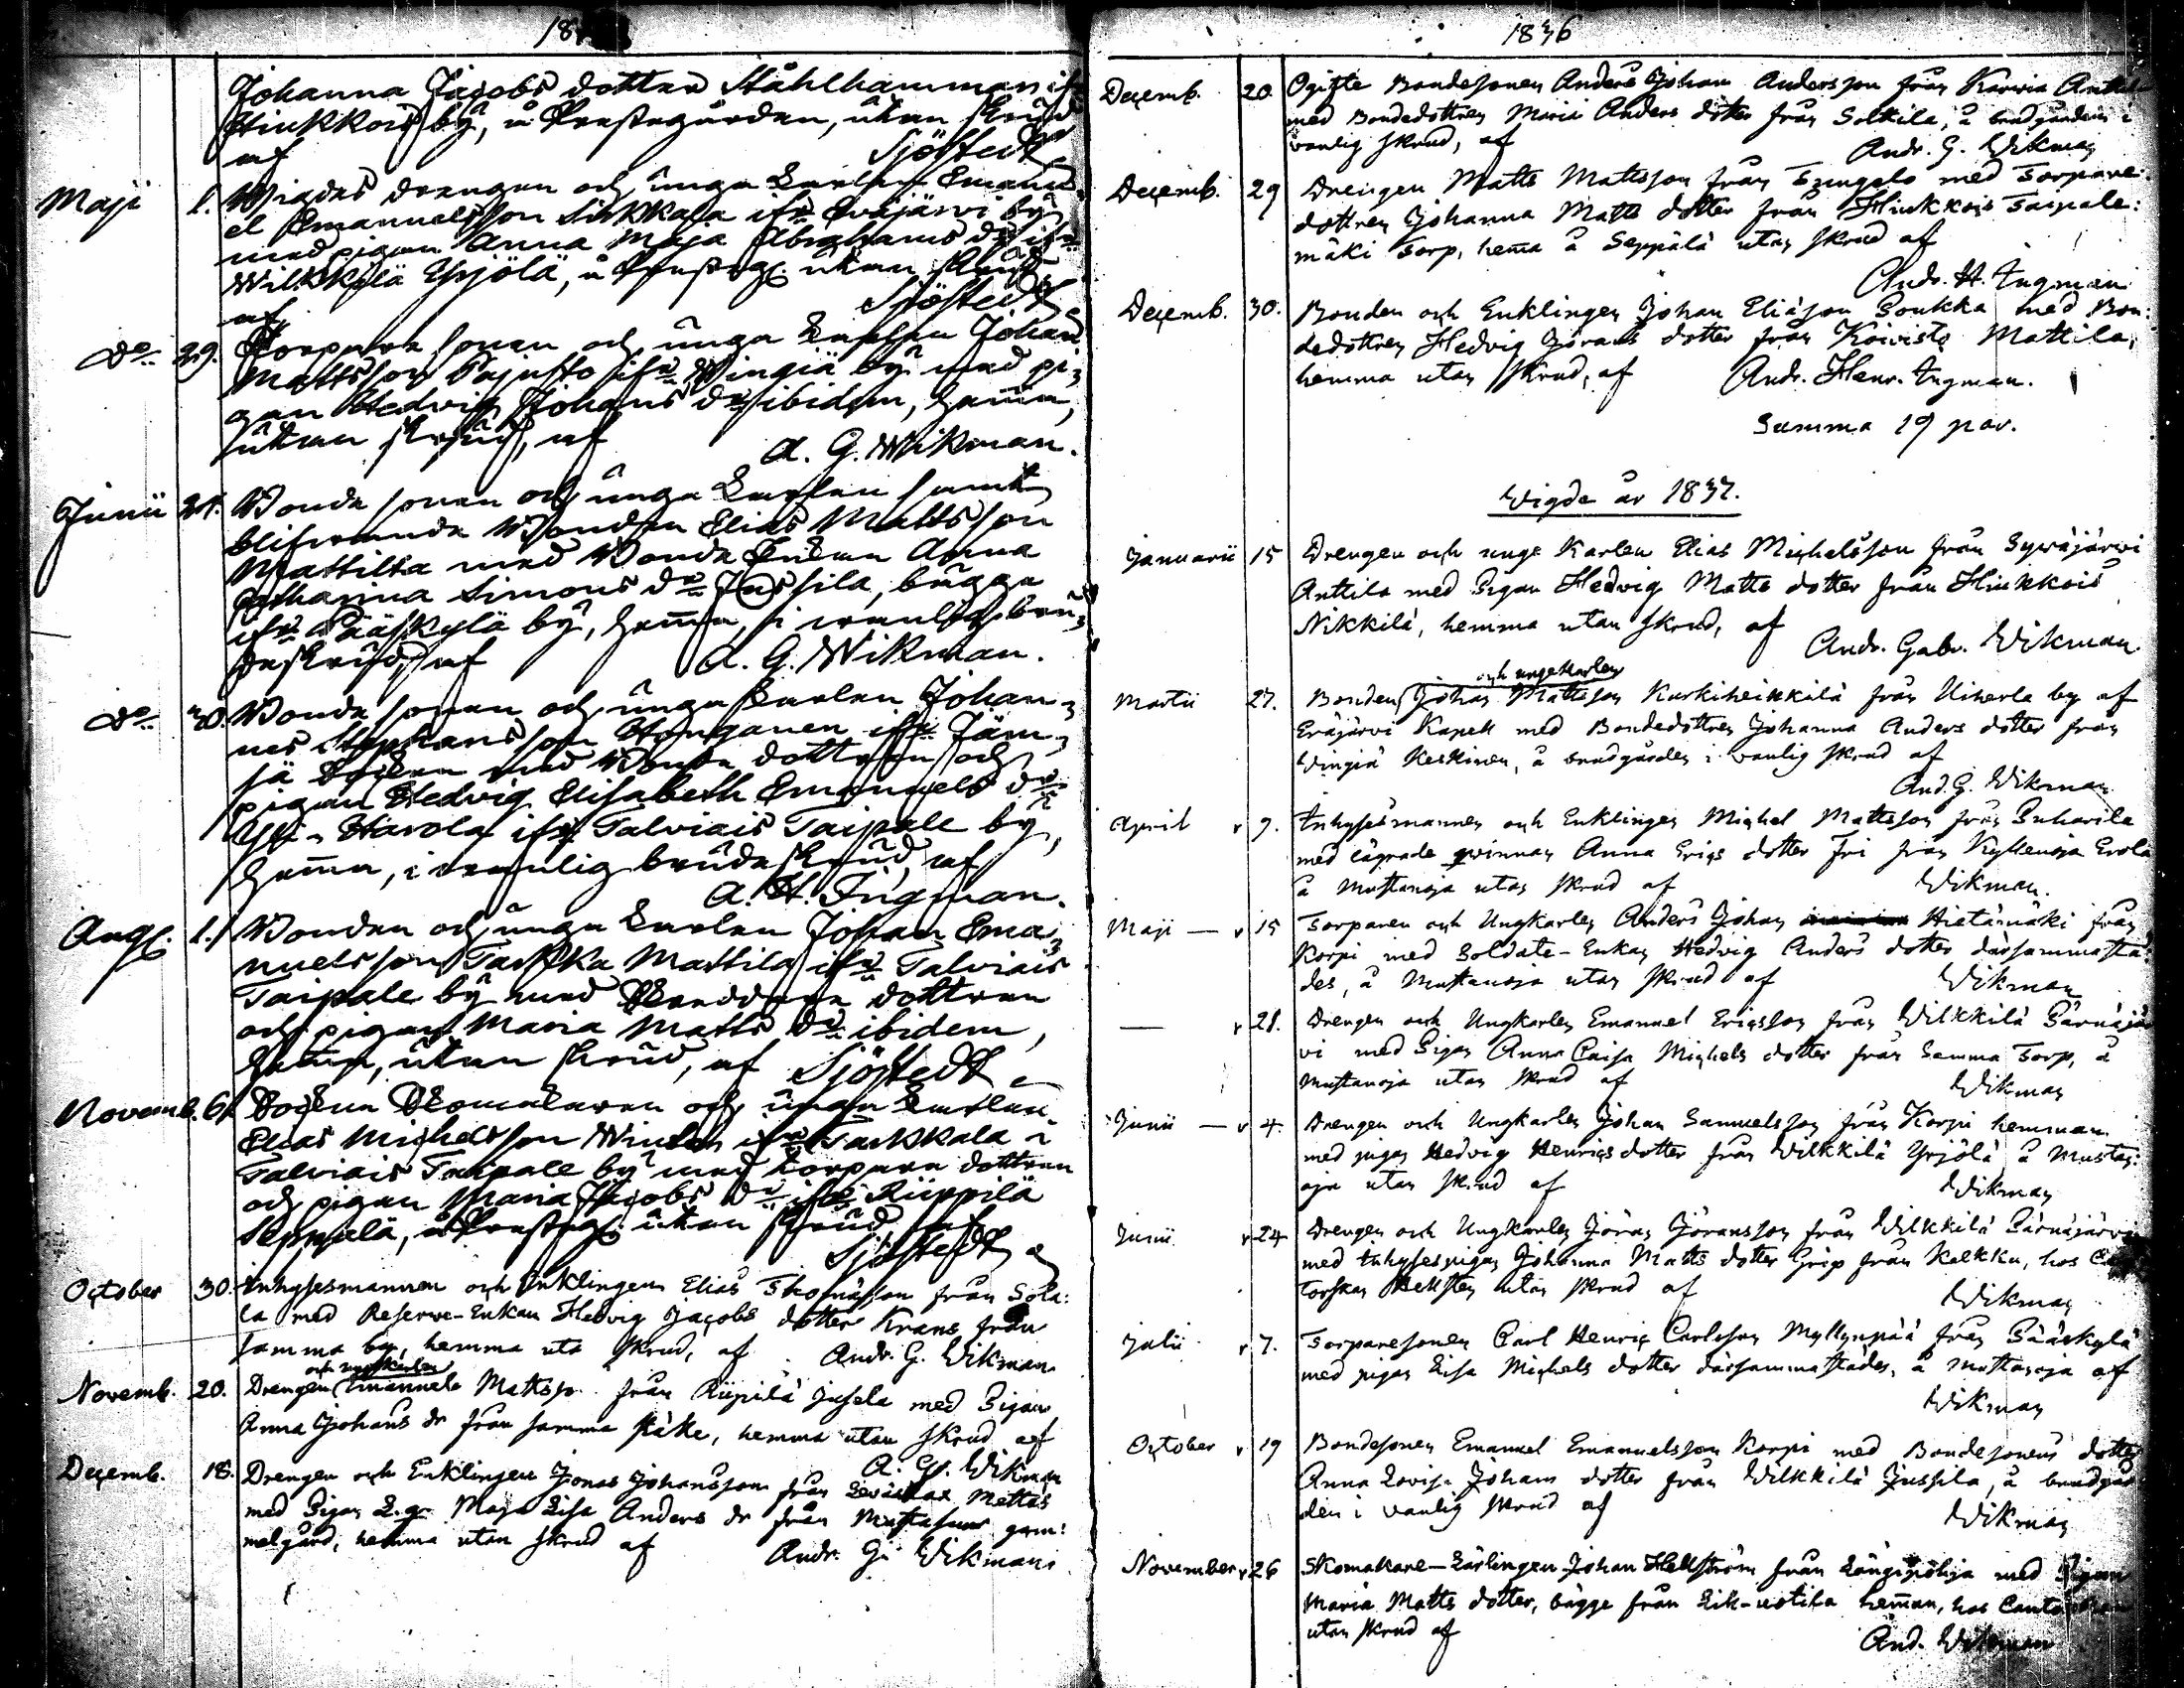 18
Johanna Jacobs dotter Ståhlhammar ifr
Hiukkois by, å Prestegården, utan skrud
af Sjöstedt
Maji 1. Wigdes drengen och unga karlen Emanu-
el Emanuelsson Sirkkala ifr. Eväjärvi by
med pigan Anna Maja Abrahams dr. ifr.
Wilkkilä Yrjölä, å Presteg. utan skrud
af Sjöstedt
Do. 29. Torpare sonen och unga karlen Johan
Mattsson Pajusto ifr. Wingiä by med pi-
gan Hedvig Johans dr. ibidem, hemma,
utan skrud, af A. G. Wikman.
Junii 21. Bonde sonen och unga karlen samt
blifwande Bonden Elias Mattsson
Mattilla med Bonde Enkan Anna
Johanna Simons dr. Jussila, bägge
ifr. Pääskylä by, hemma, i wanlig bru-
deskrud, af A. G. Wikman.
Do. 30. Bonde sonen och unga karlen Johan-
nes Stephansson Honganen ifr. Jäm-
sä Socken med Bonde dottren och
pigan Hedvig Elisabeth Emanuels dr.
Yli-Havola ifr. Talviais Taipale by,
hemma, i wanlig brudeskrud, af
A. H. Ingman.
Aug. 1. Bonden och unga karlen Johan Ema-
nuelsson Taskka Mattila ifr. Talviais
Taipale by med dottren
och pigan Maria Matts dr. ibidem,
hemma, utan skrud, af Sjöstedt
Novemb. 6. Socken Skomakaren och unga karlen
Elias Michelsson Winter ifr. Taskkala i
Talviais Taipale by med torpare dottren
och pigan Maria Jacobs dr. ifr. Riippilä
Seppälä, å Presteg. utan skrud, af
Sjöstedt
October 30. Inhysesmannen och Enklingen Elias Thomasson från Sola:
la med Reserve-Enkan Hedvig Jacobs dotter Krans från
samma by, hemma uta skrud, af Andr. G. Wikman
och ungkarlen
Novemb. 20. Drengen Emanuel Mattss. från Riipilä Jusela med Pigan
Anna Johans dr från samma ställe, hemma utan skrud af
A. G. Wikman
Decemb. 18. Drengen och Enklingen Jonas Johansson från Mattas
med Pigan Maja Lisa Anders dr från gam:
melgård, hemma utan skrud af Andr. G. Wikman
1836
Decemb. 20 Ogifte Bondesonen Anders Johan Andersson från Karvia Anttila
med Bondedottren Maria Anders dotter från Solkila, å brudgården i
vanlig skrud, af Andr. G. Wikman
Decemb. 29 Drengen Matts Mattsson från med Torpare
dottren Johanna Matts dotter från Hiukkois Taipale:
mäki Torp, hema å Seppälä utan skrud af
Andr. H. Ingman
Decemb. 30. Bonden och Enklingen Johan Eliasson Soukka med Bon:
dedottren Hedvig Görans dotter från Koivisto Mattila,
hemma utan skrud, af Andr. Henr. Ingman.
Summa 19 par.
Wigde år 1837.
Januarii 15 Drengen och unge Karlen Elias Michelsson från Syväjärvi
Anttila med Pigan Hedvig Matts dotter från Hiukkois
Nikkilä, hemma utan skrud, af Andr. Gabr. Wikman
och unge Karlen
Martii 27. Bonden Johan Mattsson Kurkiheikkilä från Uiherla by af
Eräjärvi Kapell med Bondedottren Johanna Anders dotter från
Wingiä Keskinen, å brudgården i vanlig skrud af
And. G. Wikman
April v 9. Inhysesmannen och Enklingen Michel Mattsson från Suharila
med lägrade qwinnan Anna Erics dotter Fri från Kyllenoja Erola
å Mustanoja utan skrud af Wikman.
Maji — v 15 Torparen och Ungkarlen Anders Johan Hietamäki från
Korpi med Soldate-Enkan Hedvig Anders dotter därsammastä:
des, å Mustanoja utan skrud af Wikman
— v 28. Drengen och Ungkarlen Emanuel Ericsson från Wilkkilä Särnäjär
vi med Pigan Anna Caisa Michels dotter från Samma Torp, å
Mustanoja utan skrud af Wikman
Junii — v 4. Drengen och Ungkarlen Johan Samuelsson från Korpi hemman
med pigan Hedvig Henrics dotter från Wilkkilä Yrjölä å Mustan:
oja utan skrud af Wikman
Junii v 24 Drengen och Ungkarlen Göran Göransson från Wilkkilä Särnäjärvi
med Inhysespigan Johanna Matts dotter Grip från Kalkku, hos
Torskan Hellsten utan skrud af Wikman
Julii v 7. Torparesonen Carl Henric Carlsson Myllynpää från Pääskylä
med pigan Lisa Michels dotter därsammastädes, å Mustanoja af
Wikman
October v 19 Bondesonen Emanuel Emanuelsson Korpi med Bondesonens dotter
Anna Lovisa Johans dotter från Wilkkilä Jussila, å brudgår
den i vanlig skrud af Wikman
November v 26 Skomakare-Lärlingen Johan Hellström från Längipohja med Pigan
Maria Matts dotter, bägge från heman, hos
utan skrud af And. Wikman